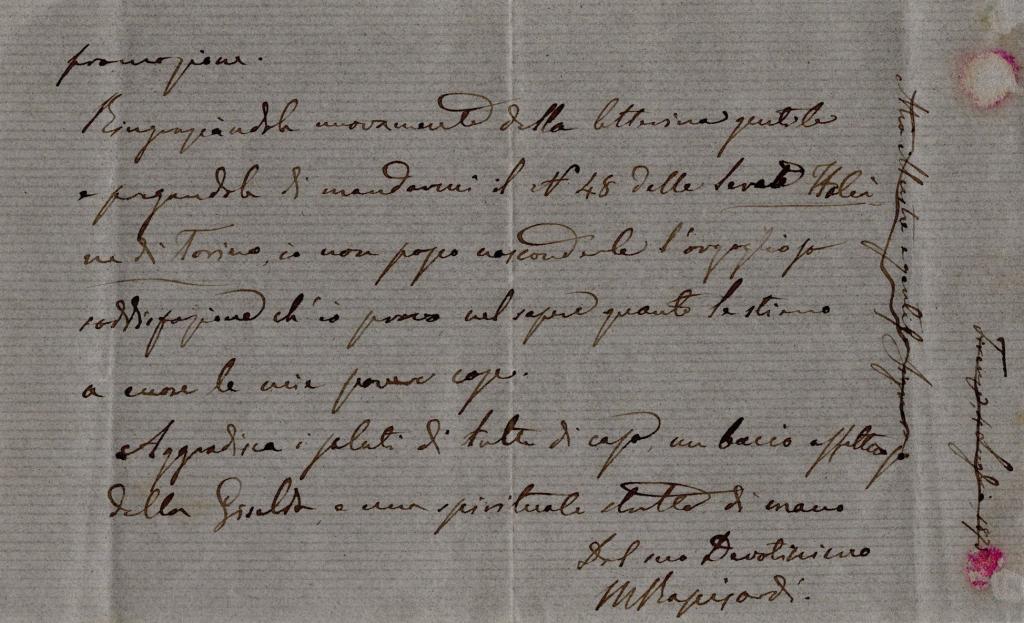 promozione.
Ringraziandola nuovamente della letterina gentile
e pregandola di mandarmi il N 48 delle Serate Italia
ne di Torino, io non posso nasconderle l'orgogliosa
soddisfazione ch'io provo nel sapere quanto le stiano
a cuore le mie povere cose.
Aggradisca i saluti di tutti di casa, un bacio affettuoso
della Giselda e una spirituale stretta di mano
Del suo Devotissimo
MRapisardi.
Illustre e gentile Signora
Luglio